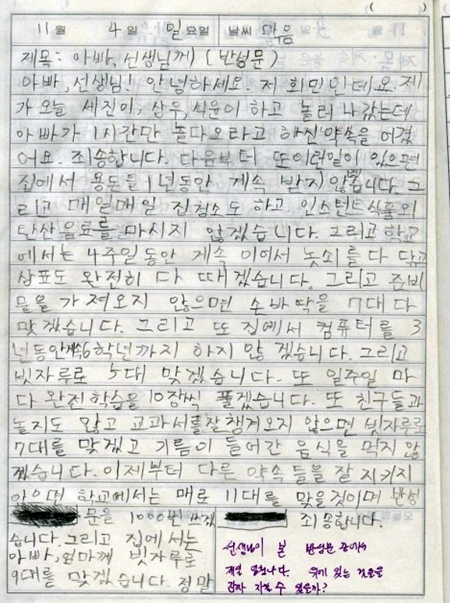 11월 4일 일요일 날씨 맑음
제목: 아빠, 선생님께 (반성문)
아빠, 선생님! 안녕하세요. 저 회민인데요. 제
가 오늘 세진이, 상우, 석운이 하고 놀러 나갔는데
아빠가 1시간만 놀다오라고 하신약속을 어겼
어요. 죄송합니다. 다음부터 또이런일이 있으면
집에서 용돈을 1년동안 계속 받지 않겠습니다. 그
리고 매일매일 집청소도 하고 인스턴트식품외
탄산음료를 마시지 않겠습니다. 그리고 학교
에서는 4주일동안 계속 이에서 놋쇠를 다 닦고
상표도 완전히 다 때겠습니다. 그리고 준비
물을 가져오지 않으면 손바닥을 7대 다
맞겠습니다. 그리고 또 집에서 컴퓨터를 3
년동안 계속 6학년까지 하지 않겠습니다. 그리고
빗자루로 5대 맞겠습니다. 또 일주일 마
다 완전학습을 10장씩 풀겠습니다. 또 친구들과
놀지도 않고 교과서를 잘챙겨오지 않으면 빗자루로
7대를 맞겠고 기름이 들어간 음식을 먹지 않
겠습니다. 이제부터 다른 약속들을 잘 지키지
않으면 학교에서는 매로 11대를 맞을것이며 반성
문을 1000번 쓰겠
습니다. 그리고 집에서는
아빠, 엄마께 빗자루로
9대를 맞겠습니다. 정말
죄송합니다.
선생님이 본 반성문 중에서
제일 입니다. 위에 있는 것들을
다 지킬 수 있을까?